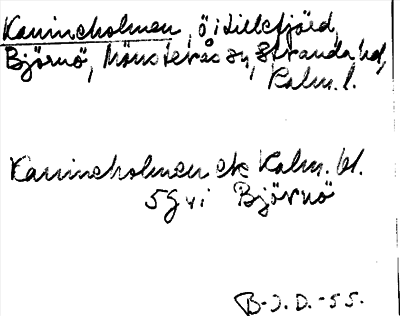 Kanineholmen, ö i Lillefjärd,
Björnö, Mönsterås sn, Stranda hd,
Kalm. l.
Kanineholmen ek Kalm. bl.
5G vi Björnö
B-J.D.-55.